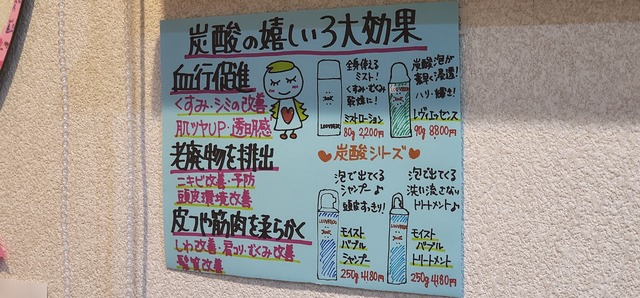 炭酸の嬉しい3大効果
血行促進
くすみ・シミの改善
肌ツヤUP・透明感
老廃物を排出
ニキビ改善・予防
頭皮環境改善
皮フや筋肉を柔らかく
しわ改善・肩コリ・むくみ改善
髪質改善
全身使える
ミスト!
くすみ・むくみ
乾燥に!
ミストローション
80g 2,200円
炭酸泡が
素早く浸透!
ハリ・輝き!
レヴィエッセンス
90g 8800円
炭酸シリーズ
泡で出てくる
シャンプー♪
頭皮すっきり!
モイスト
バブル
シャンプー
250g 4180円
泡で出てくる
洗い流さない
トリートメント♪
モイスト
バブル
トリートメント
250g 4180円